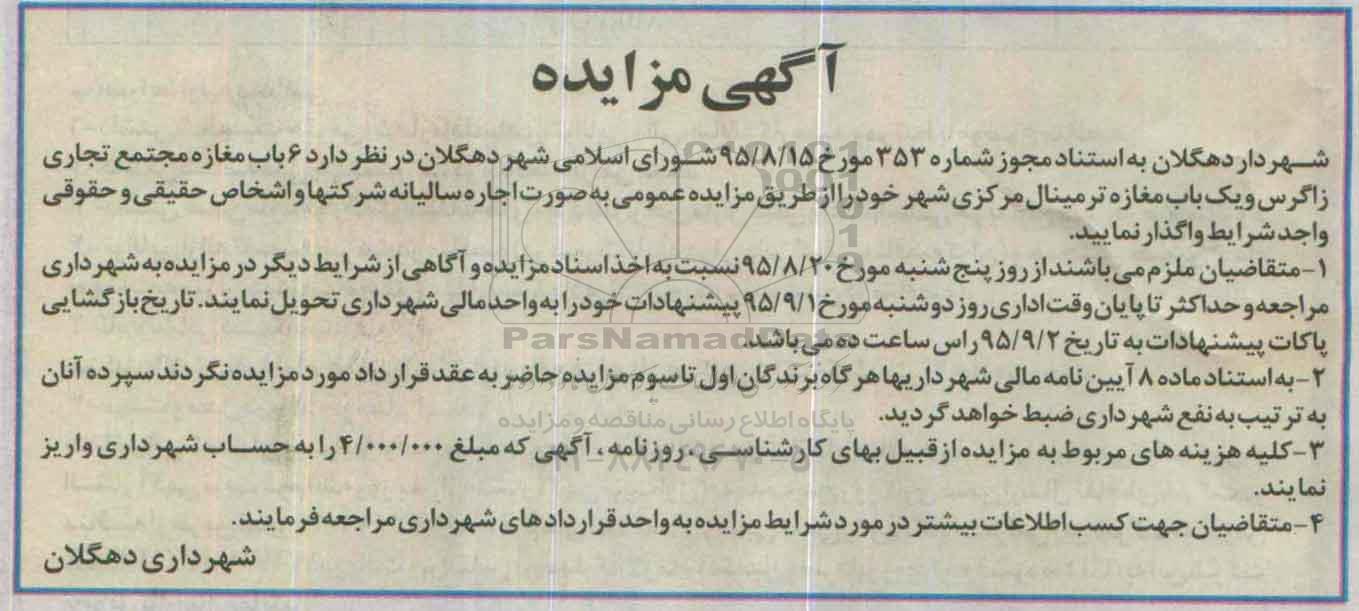 آگهی مزایده
شهردار دهگلان به استناد مجوز شماره ۳۵۳ مورخ ۹۵/۸/۱۵ شورای اسلامی شهر دهگلان در نظر دارد ۶ باب مغازه مجتمع تجاری
زاگرس و یک باب مغازه ترمینال مرکزی شهر خود را از طریق مزایده عمومی به صورت اجاره سالیانه شرکتها و اشخاص حقیقی و حقوقی
واجد شرایط واگذار نمایید.
۱-متقاضیان ملزم می باشند از روز پنج شنبه مورخ ۹۵/۸/۲۰ نسبت به اخذ اسناد مزایده و آگاهی از شرایط دیگر در مزایده به شهرداری
مراجعه و حداکثر تا پایان وقت اداری روز دوشنبه مورخ ۹۵/۹/۱ پیشنهادات خود را به واحد مالی شهرداری تحویل نمایند. تاریخ بازگشایی
پاکات پیشنهادات به تاریخ ۹۵/۹/۲ راس ساعت ده می باشد.
۲-به استناد ماده ۸ آیین نامه مالی شهرداریها هرگاه برندگان اول تا سوم مزایده حاضر به عقد قرار داد مورد مزایده نگردند سپرده آنان
به ترتیب به نفع شهرداری ضبط خواهد گردید.
۳-کلیه هزینه های مربوط به مزایده از قبیل بهای کارشناسی، روزنامه، آگهی که مبلغ ۴/۰۰۰/۰۰۰ را به حساب شهرداری واریز
نمایند.
۴-متقاضیان جهت کسب اطلاعات بیشتر در مورد شرایط مزایده به واحد قراردادهای شهرداری مراجعه فرمایند.
شهرداری دهگلان
ParsNamadData
پایگاه اطلاع رسانی مناقصه و مزایده